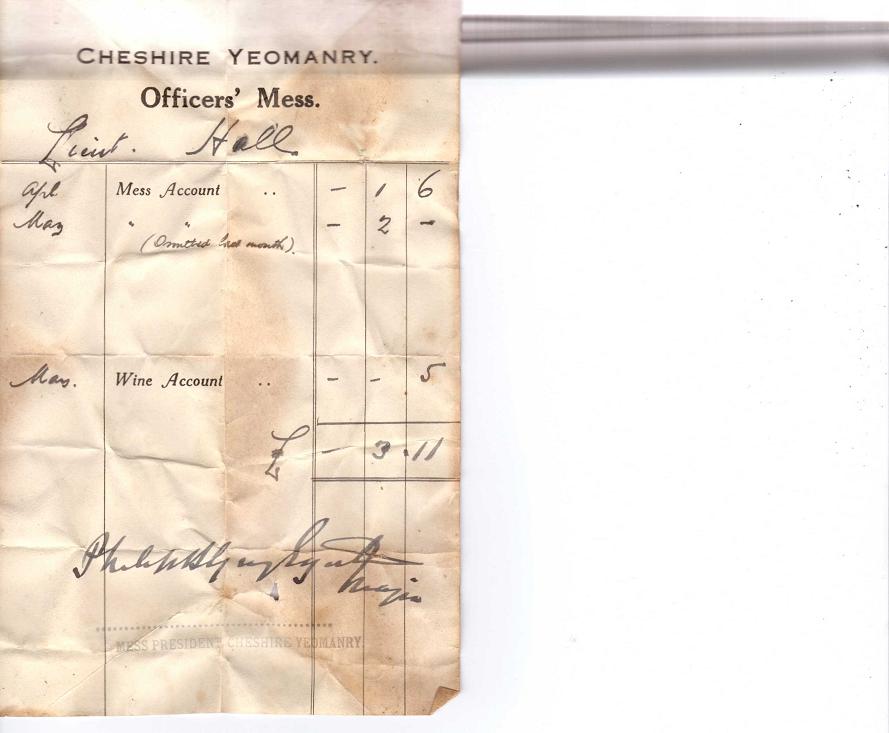 CHESHIRE YEOMANRY.
Officers' Mess.
Lieut. Hall.
Apl Mess Account .. - 1 6
May " " - 2 -
(Omitted last month).
May. Wine Account .. - - 5
£ - 3 . 11
Major
MESS PRESIDENT CHESHIRE YEOMANRY.